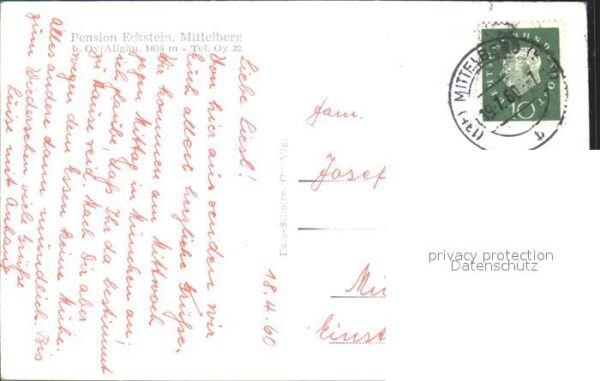 Pension Eckstein, Mittelberg
b. Oy/Allgäu, 1036 m - Tel. Oy 32
Liebe Liesl!
Von hier aus senden wir
Euch allerherzliche Grüße.
Wir kommen am Mittwoch
gegen Mittag in München an;
ich glaube, daß Ihr da bestimmt
zu Hause seid. Mach Dir aber
wegen dem Essen keine Mühe.
Alles andere dann mündlich. Bis
zum Wiedersehen viele Grüße
Luise mit Anhang
18.4.60
Fam.
Josef
Mü
Einst
DEUTSCHE BUNDESPOST
10
(13b) MITTELBERG
privacy protection
Datenschutz